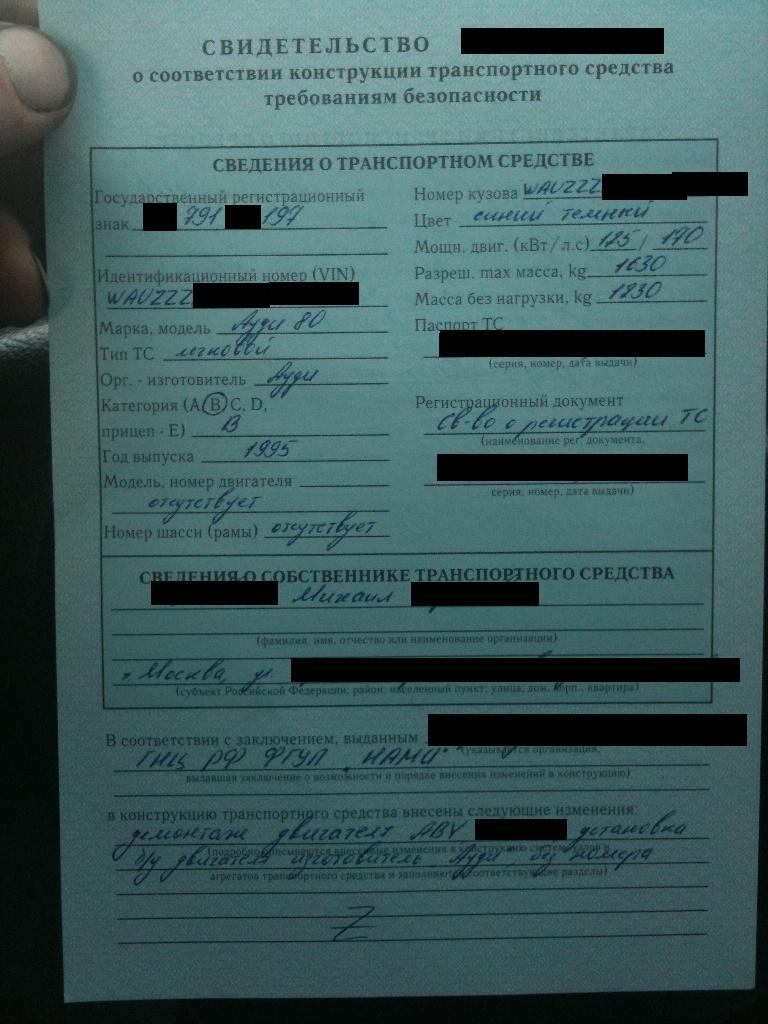 СВИДЕТЕЛЬСТВО
о соответствии конструкции транспортного средства
требованиям безопасности
СВЕДЕНИЯ О ТРАНСПОРТНОМ СРЕДСТВЕ
Государственный регистрационный
знак 791 197
Идентификационный номер (VIN)
WAUZZZ
Марка, модель Ауди 80
Тип ТС легковой
Орг. - изготовитель Ауди
Категория (А, В, С, D,
прицеп - Е) В
Год выпуска 1995
Модель, номер двигателя
отсутствует
Номер шасси (рамы) отсутствует
Номер кузова WAUZZZ
Цвет синий темный
Мощн. двиг. (кВт/л.с) 125 / 170
Разреш. max масса, kg 1630
Масса без нагрузки, kg 1230
Паспорт ТС
(серия, номер, дата выдачи)
Регистрационный документ
Св-во о регистрации ТС
(наименование рег. документа,
серия, номер, дата выдачи)
СВЕДЕНИЯ О СОБСТВЕННИКЕ ТРАНСПОРТНОГО СРЕДСТВА
Михаил
(фамилия, имя, отчество или наименование организации)
г. Москва, ул.
(субъект Российской Федерации; район; населенный пункт; улица, дом, корп., квартира)
В соответствии с заключением, выданным
(указывается организация,
ГНЦ РФ ФГУП "НАМИ"
выдавшая заключение о возможности и порядке внесения изменений в конструкцию)
в конструкцию транспортного средства внесены следующие изменения:
демонтаж двигателя ABV установка
(подробно описываются внесенные изменения в конструкцию систем, узлов и
б/у двигателя изготовитель Ауди без номера
агрегатов транспортного средства и заполняются соответствующие разделы)
Z